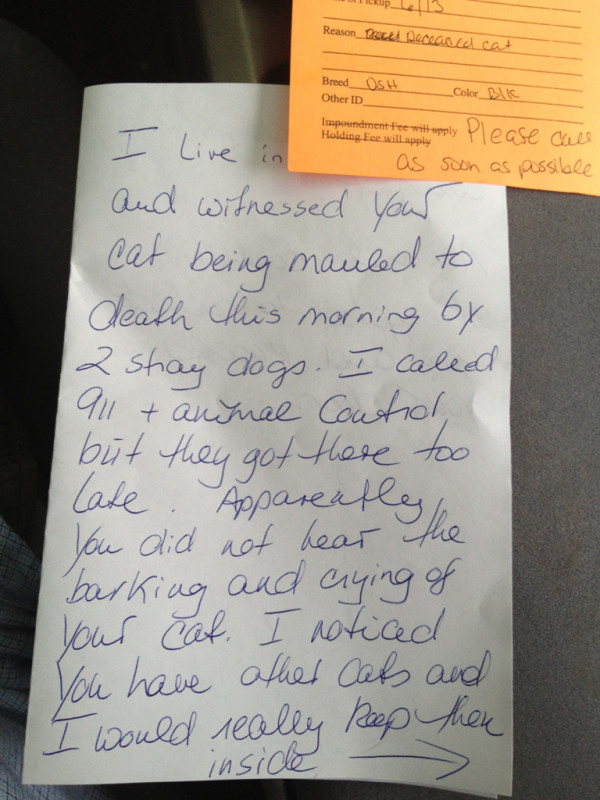 of Pickup 6/13
Reason Deceased cat
Breed DSH Color Blk
Other ID
Impoundment Fee will apply Please call
Holding Fee will apply
as soon as possible
I Live in
and witnessed your
cat being mauled to
death this morning by
2 stray dogs. I called
911 + animal Control
but they got there too
late. Apparently,
you did not hear the
barking and crying of
your cat. I noticed
you have other cats and
I would really keep them
inside →